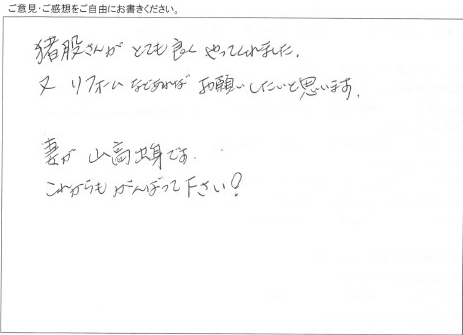 ご意見・ご感想をご自由にお書きください。
猪股さんが とても良く やってくれました.
又 リフォームなどあれば お願いしたいと思います.
妻が 山高出身です.
これからも がんばって下さい!